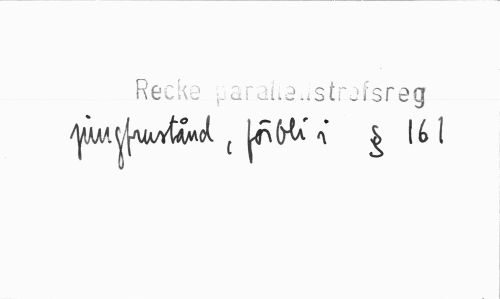 Recke parallellstrofsreg
jungfrustånd, förbli i § 161